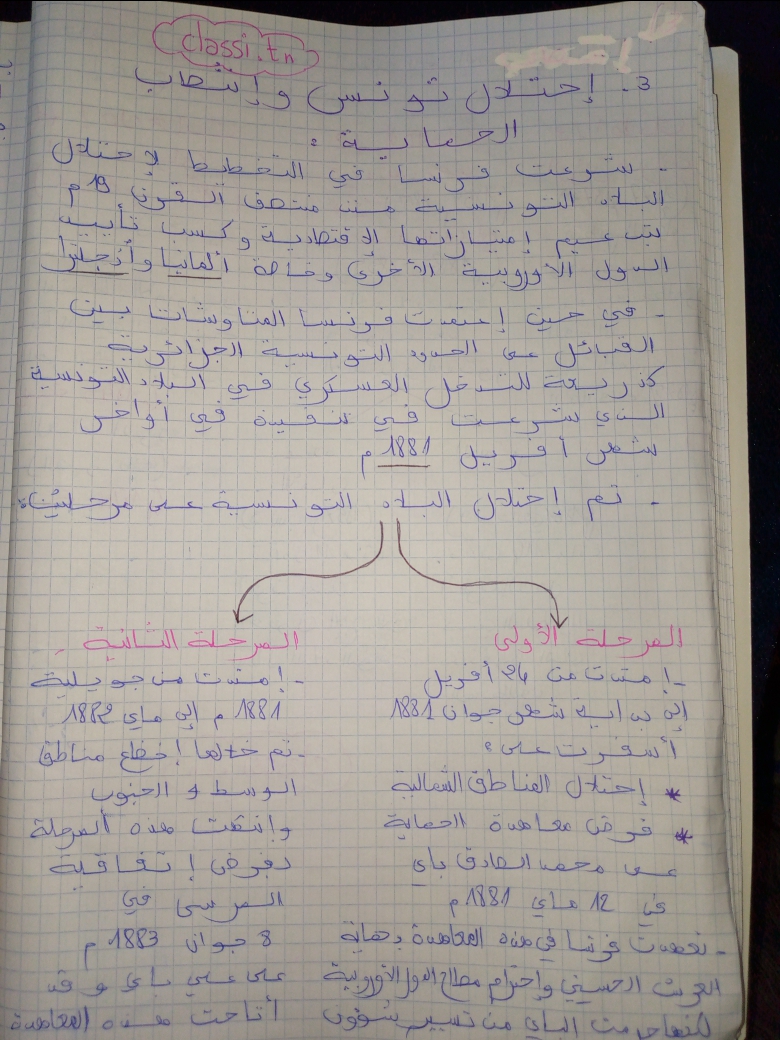 classi.tn
3. إحتلال تونس وإنتصاب
الحماية :
- شرعت فرنسا في التخطيط لإحتلال
البلاد التونسية منذ منتصف القرن 19 م
بتدعيم إمتيازاتها الإقتصادية وكسب تأييد
الدول الأوروبية الأخرى وخاصة ألمانيا وأنجلترا
- في حين إعتمدت فرنسا المناوشات بين
القبائل على الحدود التونسية الجزائرية
كذريعة للتدخل العسكري في البلاد التونسية
الذي شرعت في تنفيذه في أواخر
شهر أفريل 1881 م
- تم إحتلال البلاد التونسية على مرحلتين:
المرحلة الأولى
- إمتدت من 24 أفريل
إلى بداية شهر جوان 1881
أسفرت على :
* إحتلال المناطق الشمالية
* فرض معاهدة الحماية
على محمد الصادق باي
في 12 ماي 1881 م
- تعهدت فرنسا في هذه المعاهدة بحماية
العرش الحسيني وإحترام مصالح الدول الأوروبية
الباي من تسيير شؤون
المرحلة الثانية
- إمتدت من جويلية
1881 م إلى ماي 1882
- تم خلالها إخضاع مناطق
الوسط و الجنوب
وانتهت هذه المرحلة
بفرض إتفاقية
المرسى في
8 جوان 1883 م
على علي باي و قد
أتاحت هذه المعاهدة